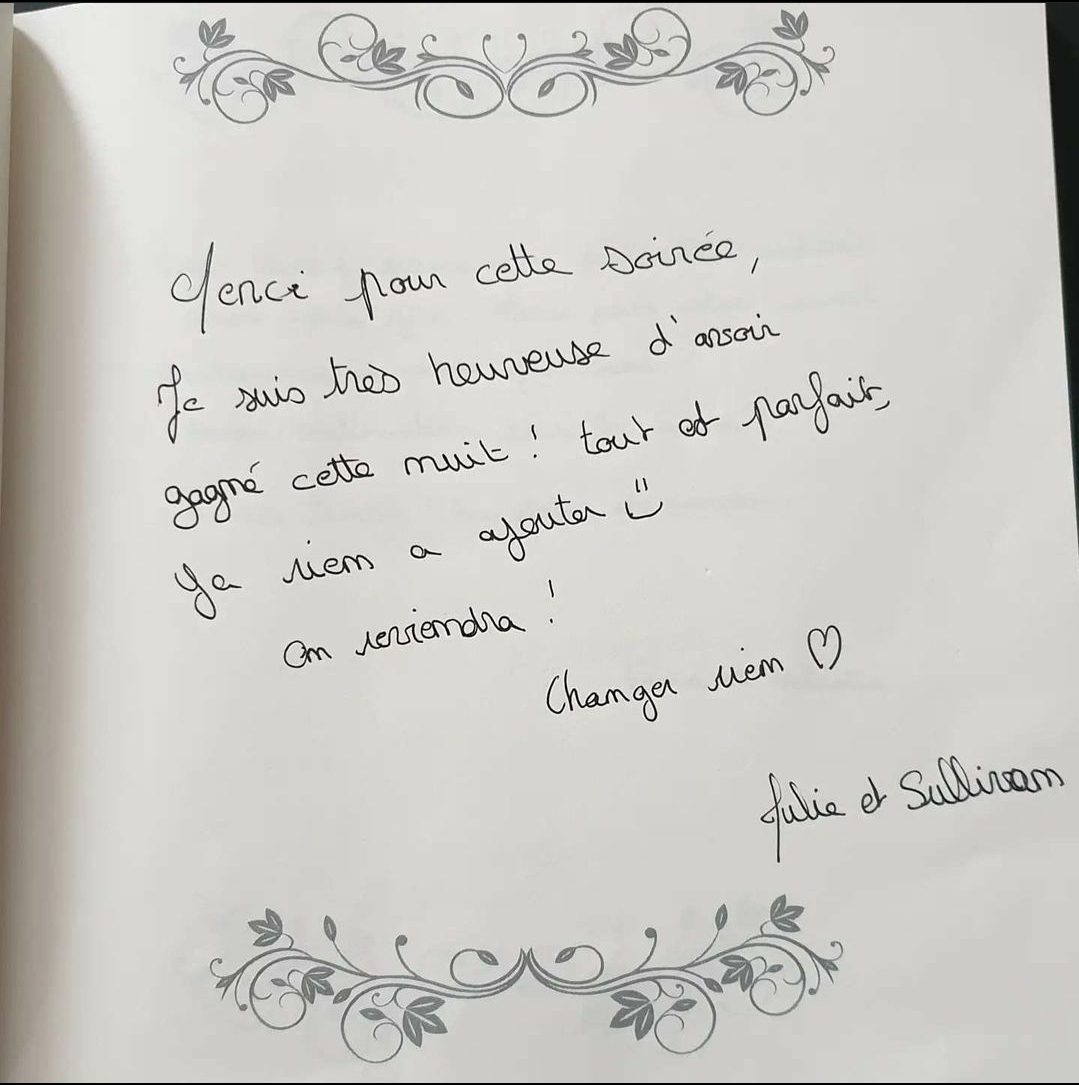 Merci pour cette soirée,
Je suis très heureuse d'avoir
gagné cette nuit ! tout et parfait,
Ya rien a ajouter
on reviendra !
Changer rien ♡
Julie et Sullivan